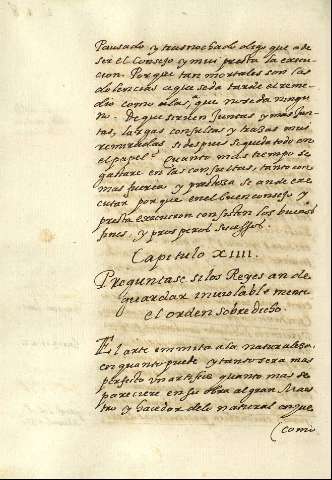 Pausado y trasnochado digo que a de
ser el Consejo y mui presta la execu
cion. Porque tan mortales son las
dolencias a que se da tarde el reme
dio como a las, que no se da ningu
no. De que sirven Juntas y mas Jun
tas, largas consultas y trazas mui
remiradas si despues se queda todo en
el papel? Cuanto mas tiempo se
gastare en las consultas, tanto con
mas fuerça y presteza se an de exe
cutar porque en el buen consejo y
presta execucion consisten los buenos
fines, y prosperos sucessos.
Capitulo XIIII.
Preguntase si los Reyes an de
guardar inviolable mente
el orden sobredicho.
El arte immita a la naturaleza,
en quanto puede y tanto sera mas
perfecto un artifice quanto mas se
pareciere en su obra al gran Maes
tro y hacedor dela natural en que
(como